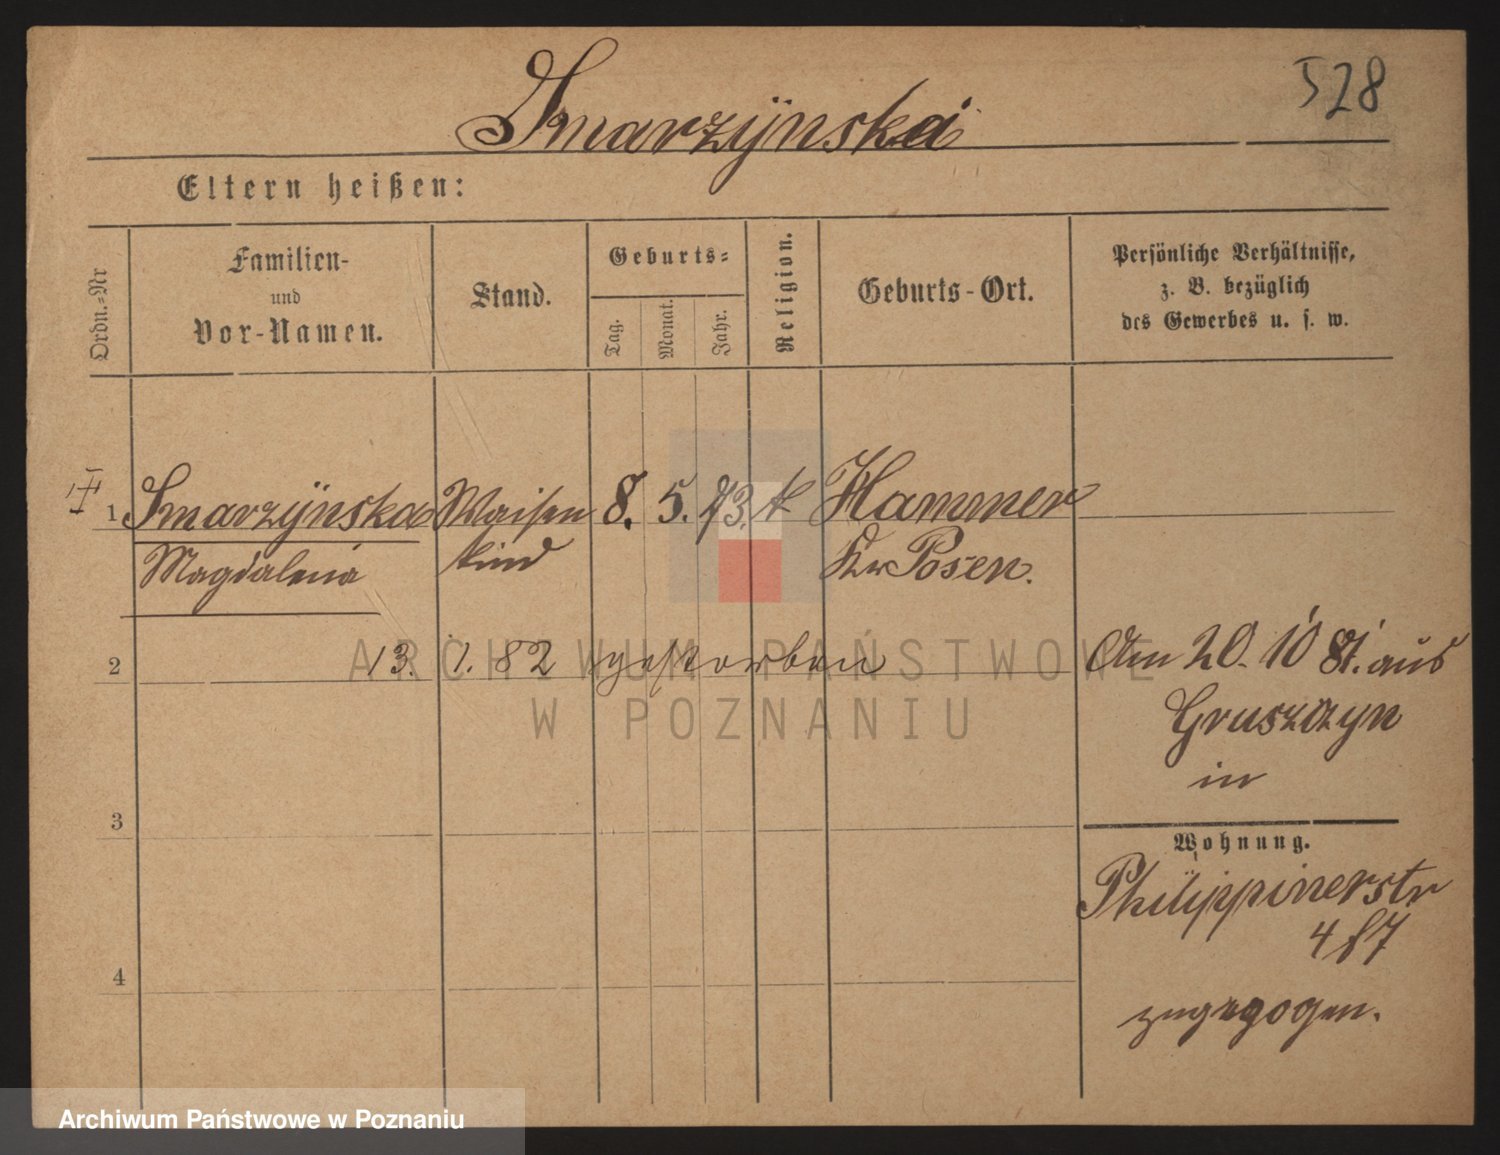 528
Smarzÿnska
Eltern heißen:
Ordn.-Nr
Familien-
und
Vor-Namen.
Stand.
Geburts-
Tag.
Monat.
Jahr.
Religion.
Geburts-Ort.
Persönliche Verhältnisse,
z. B. bezüglich
des Gewerbes u. s. w.
1 Smarzÿnska Waisen 8. 5. 73. k Hammer
Magdalena kind Kr Posen.
2 13. 1. 82 gestorben Am 20. 10 81. aus
Gruszczyn
in
3
Wohnung.
Philippinerstr
4 f 7
4
zugezogen.
ARCHIWUM PAŃSTWOWE
W POZNANIU
Archiwum Państwowe w Poznaniu